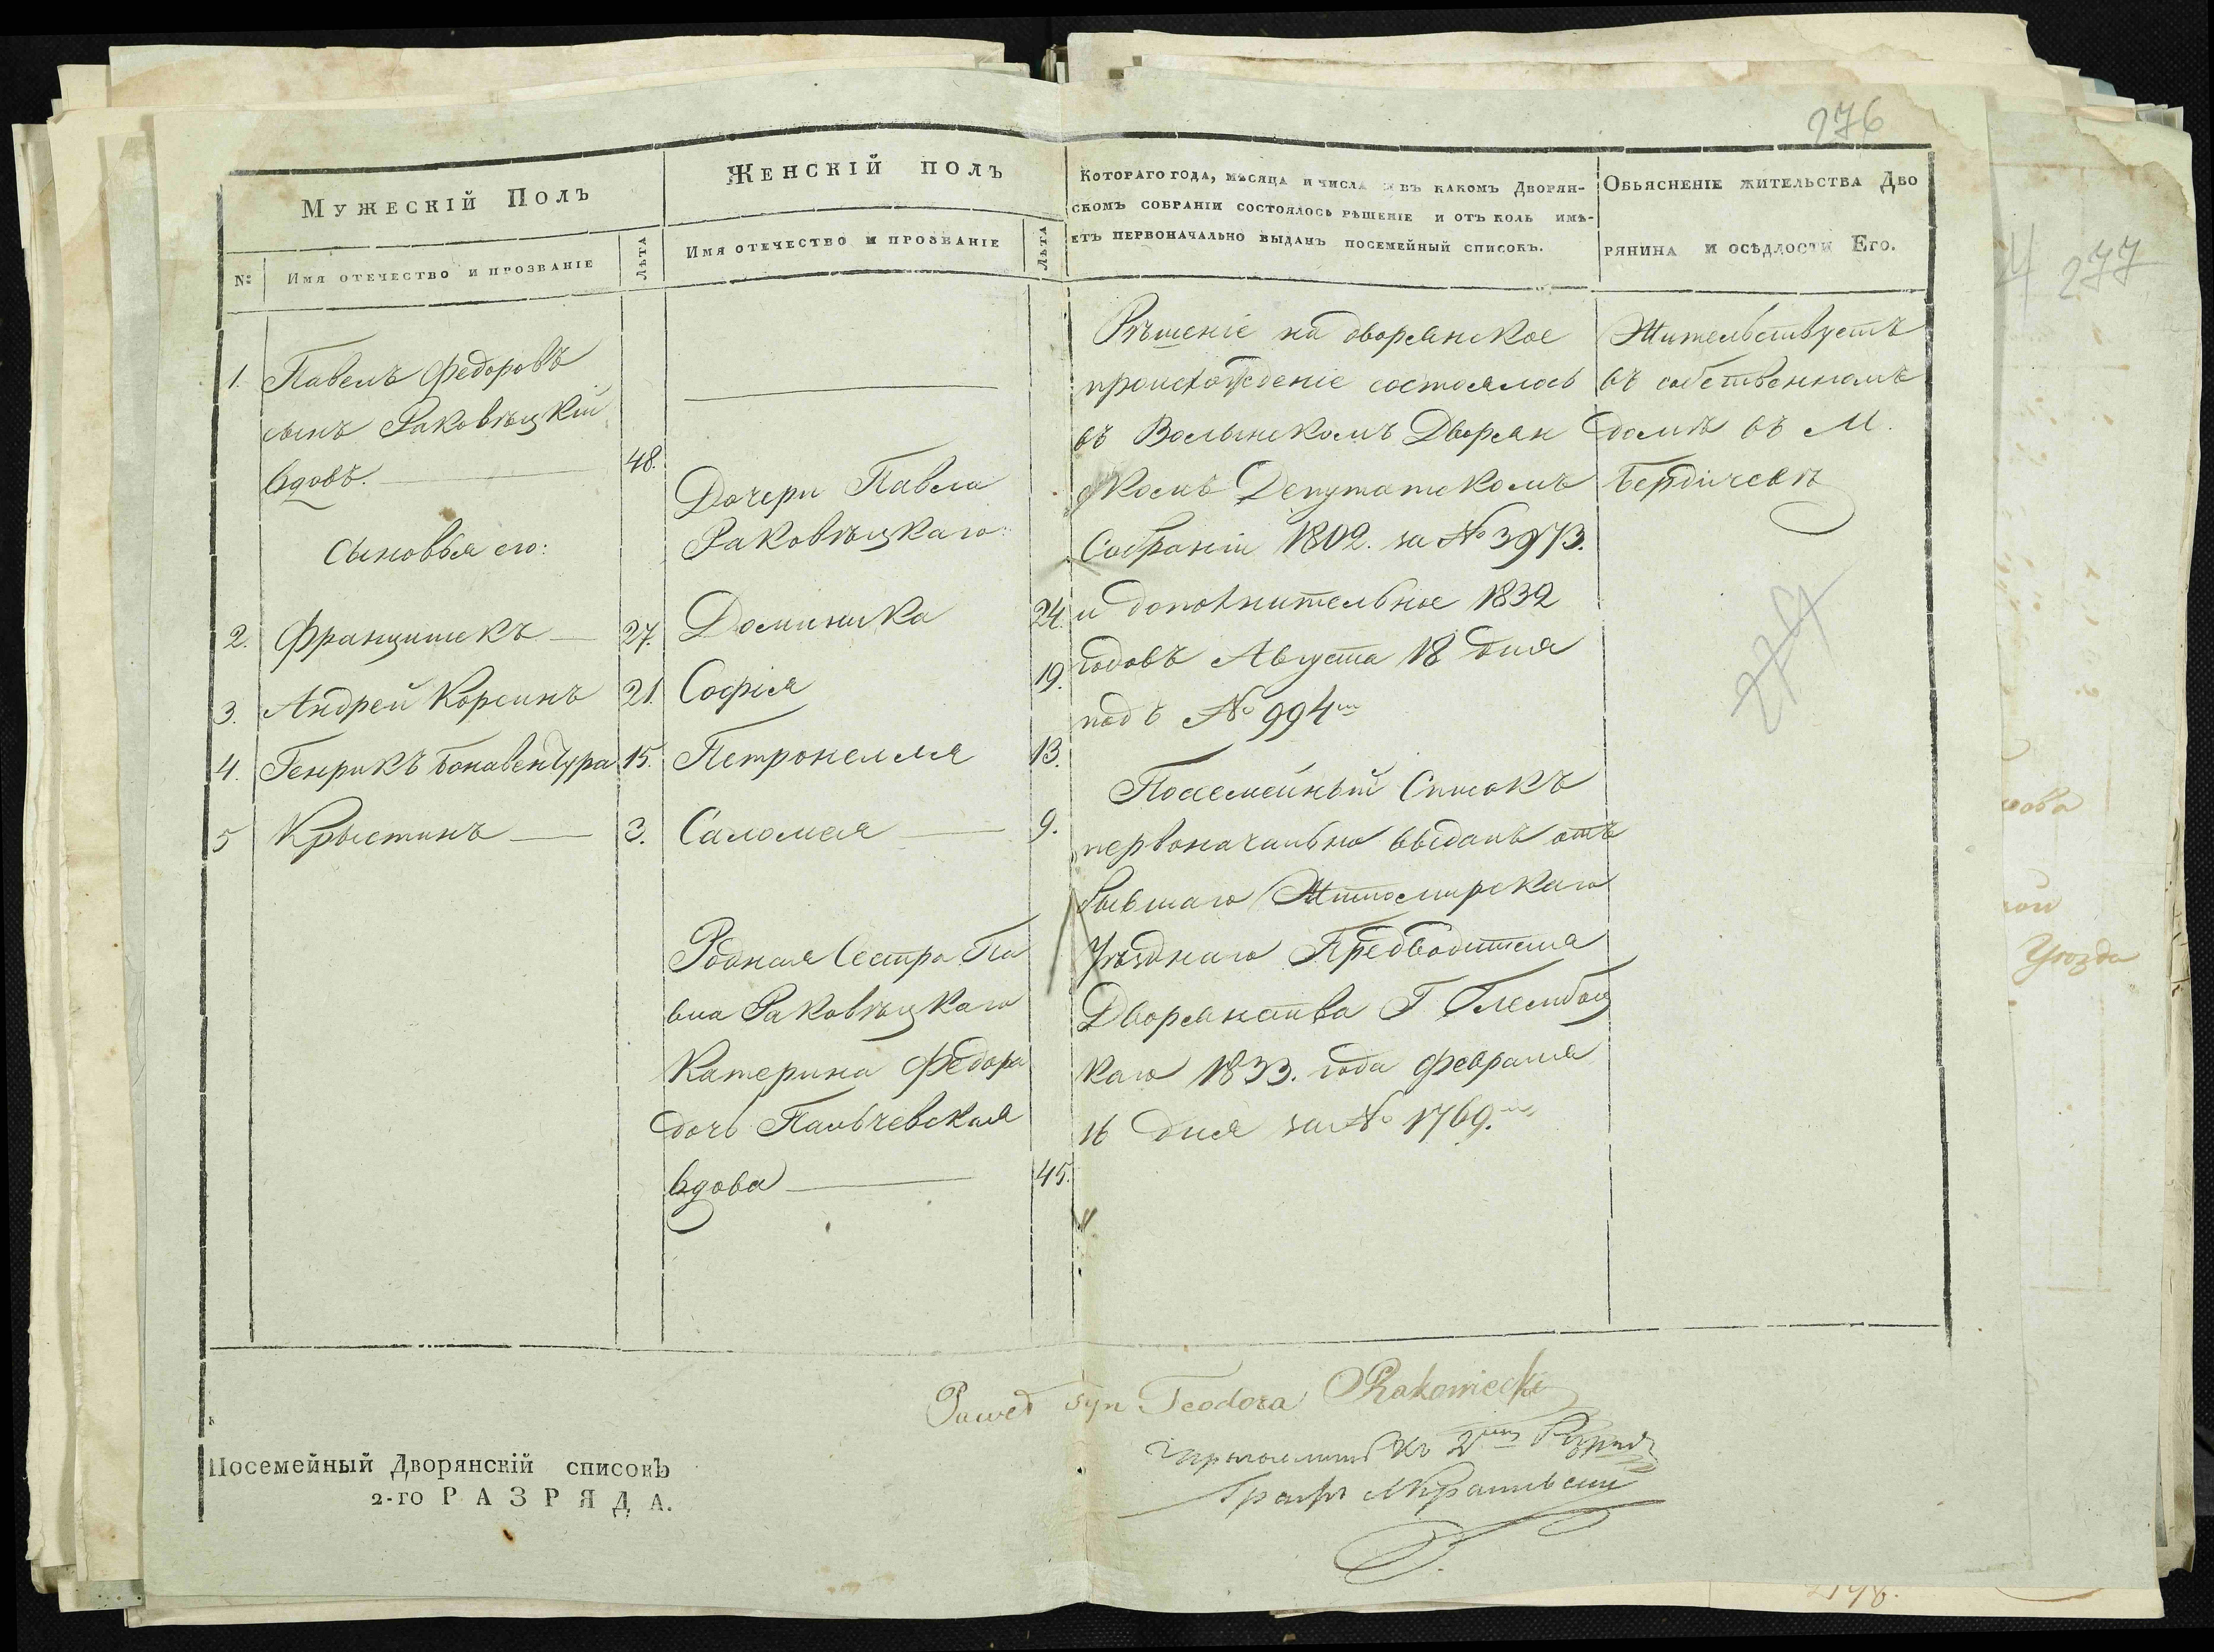 276
Мужескій Полъ
№:
Имя отечество и прозваніе
Лѣта
1. Павелъ Федоровъ
сынъ Раковѣцкій
вдовъ. 48.
Сыновья его:
2. Францишекъ 27.
3. Андрей Корсинъ 21.
4. Генрикъ Бонавентура 15.
5 Крыстинъ 3.
Женскій полъ
Имя отечество и прозваніе
Лѣта
Дочери Павла
Раковѣцкаго:
Доминика 24
Софія 19.
Петронелля 13.
Саломея 9.
Родная Сестра Па
вла Раковѣцкаго
Катерина Федора
дочь Пальчевская
вдова 45.
Котораго года, мѣсяца и числа и въ какомъ Дворян-
скомъ собраніи состоялось рѣшеніе и отъ коль имѣ-
етъ первоначально выданъ посемейный списокъ.
Рѣшеніе на дворянское
происхожденіе состоялось
въ Волынскомъ Дворян
скомъ Депутатскомъ
Собраніи 1802. за № 3973.
и дополнительное 1832
годовъ Августа 18 дня
подъ № 994
Посемейный Списокъ
первоначально выданъ отъ
бывшаго Житомирскаго
Уѣзднаго Предводителя
Дворянства Г Глембоц
каго 1833. года февраля
16 дня за № 1769.
Обьясненіе жительства Дво
рянина и осѣдлости Его.
Жительствуетъ
въ собственномъ
домѣ въ М.
Бердичевѣ
274
Paweł syn Teodora Rakowiecki
Посемейный Дворянскій списокъ
2-го РАЗРЯДА.
277
Уѣзда